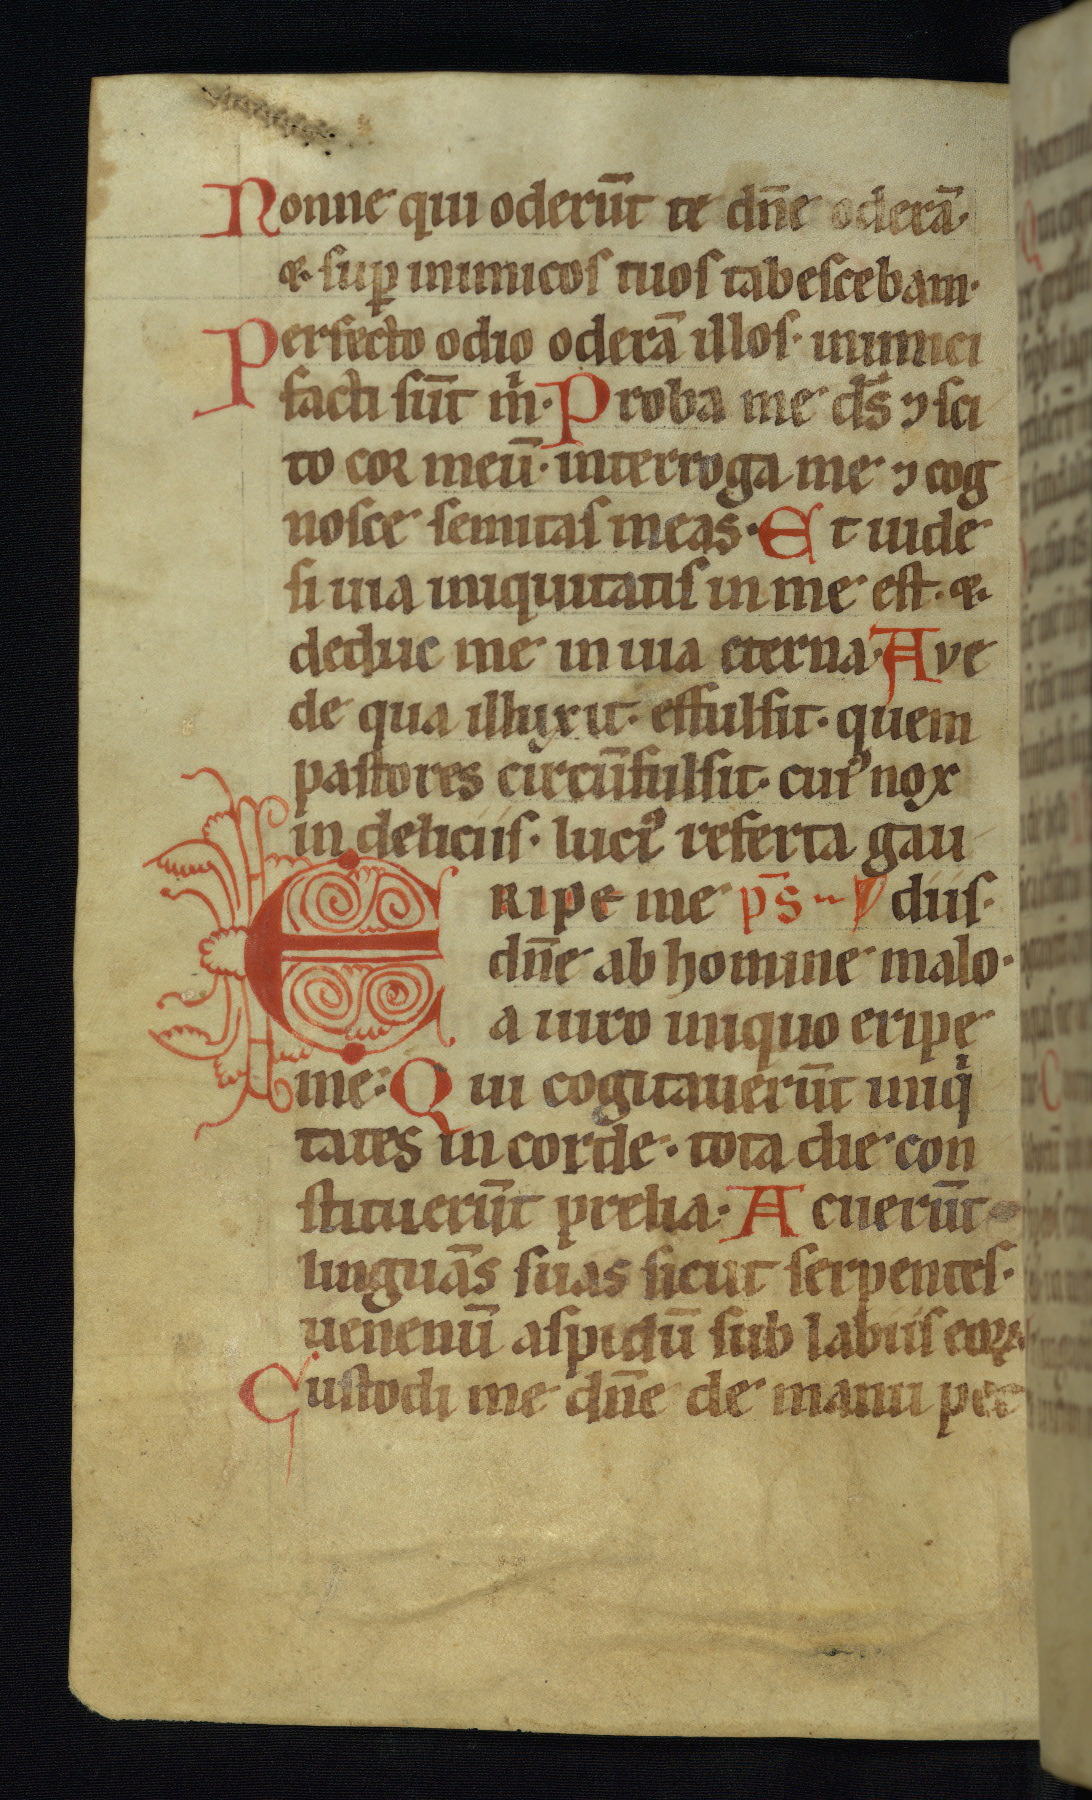 Nonne qui oderūt te dn̄e oderā·
⁊· suꝑ inimicos tuos tabescebam·
Perfecto odio oderā illos· inimici
facti sūt m̄i· Proba me ds̄ ⁊ sci
to cor meū· interroga me ⁊ cog
nosce semitas meas· Et uide
si uia iniquitatis in me est· ⁊·
deduc me in uia eterna· Ave
de qua illuxit· effulsit· quem
pastores circūfulsit· cui᷒ nox
in deliciis· luci᷒ referta gau
ERipe me ps̄ diis·
dn̄e ab homine malo·
a uiro iniquo eripe
me: Qui cogitauerūt iniqi
tates in corde· tota die con
stituerūt prelia· Acuerūt
linguās suas sicut serpentes·
uenenū aspidū sub labiis eoꝝ·
Custodi me dn̄e de manu pec